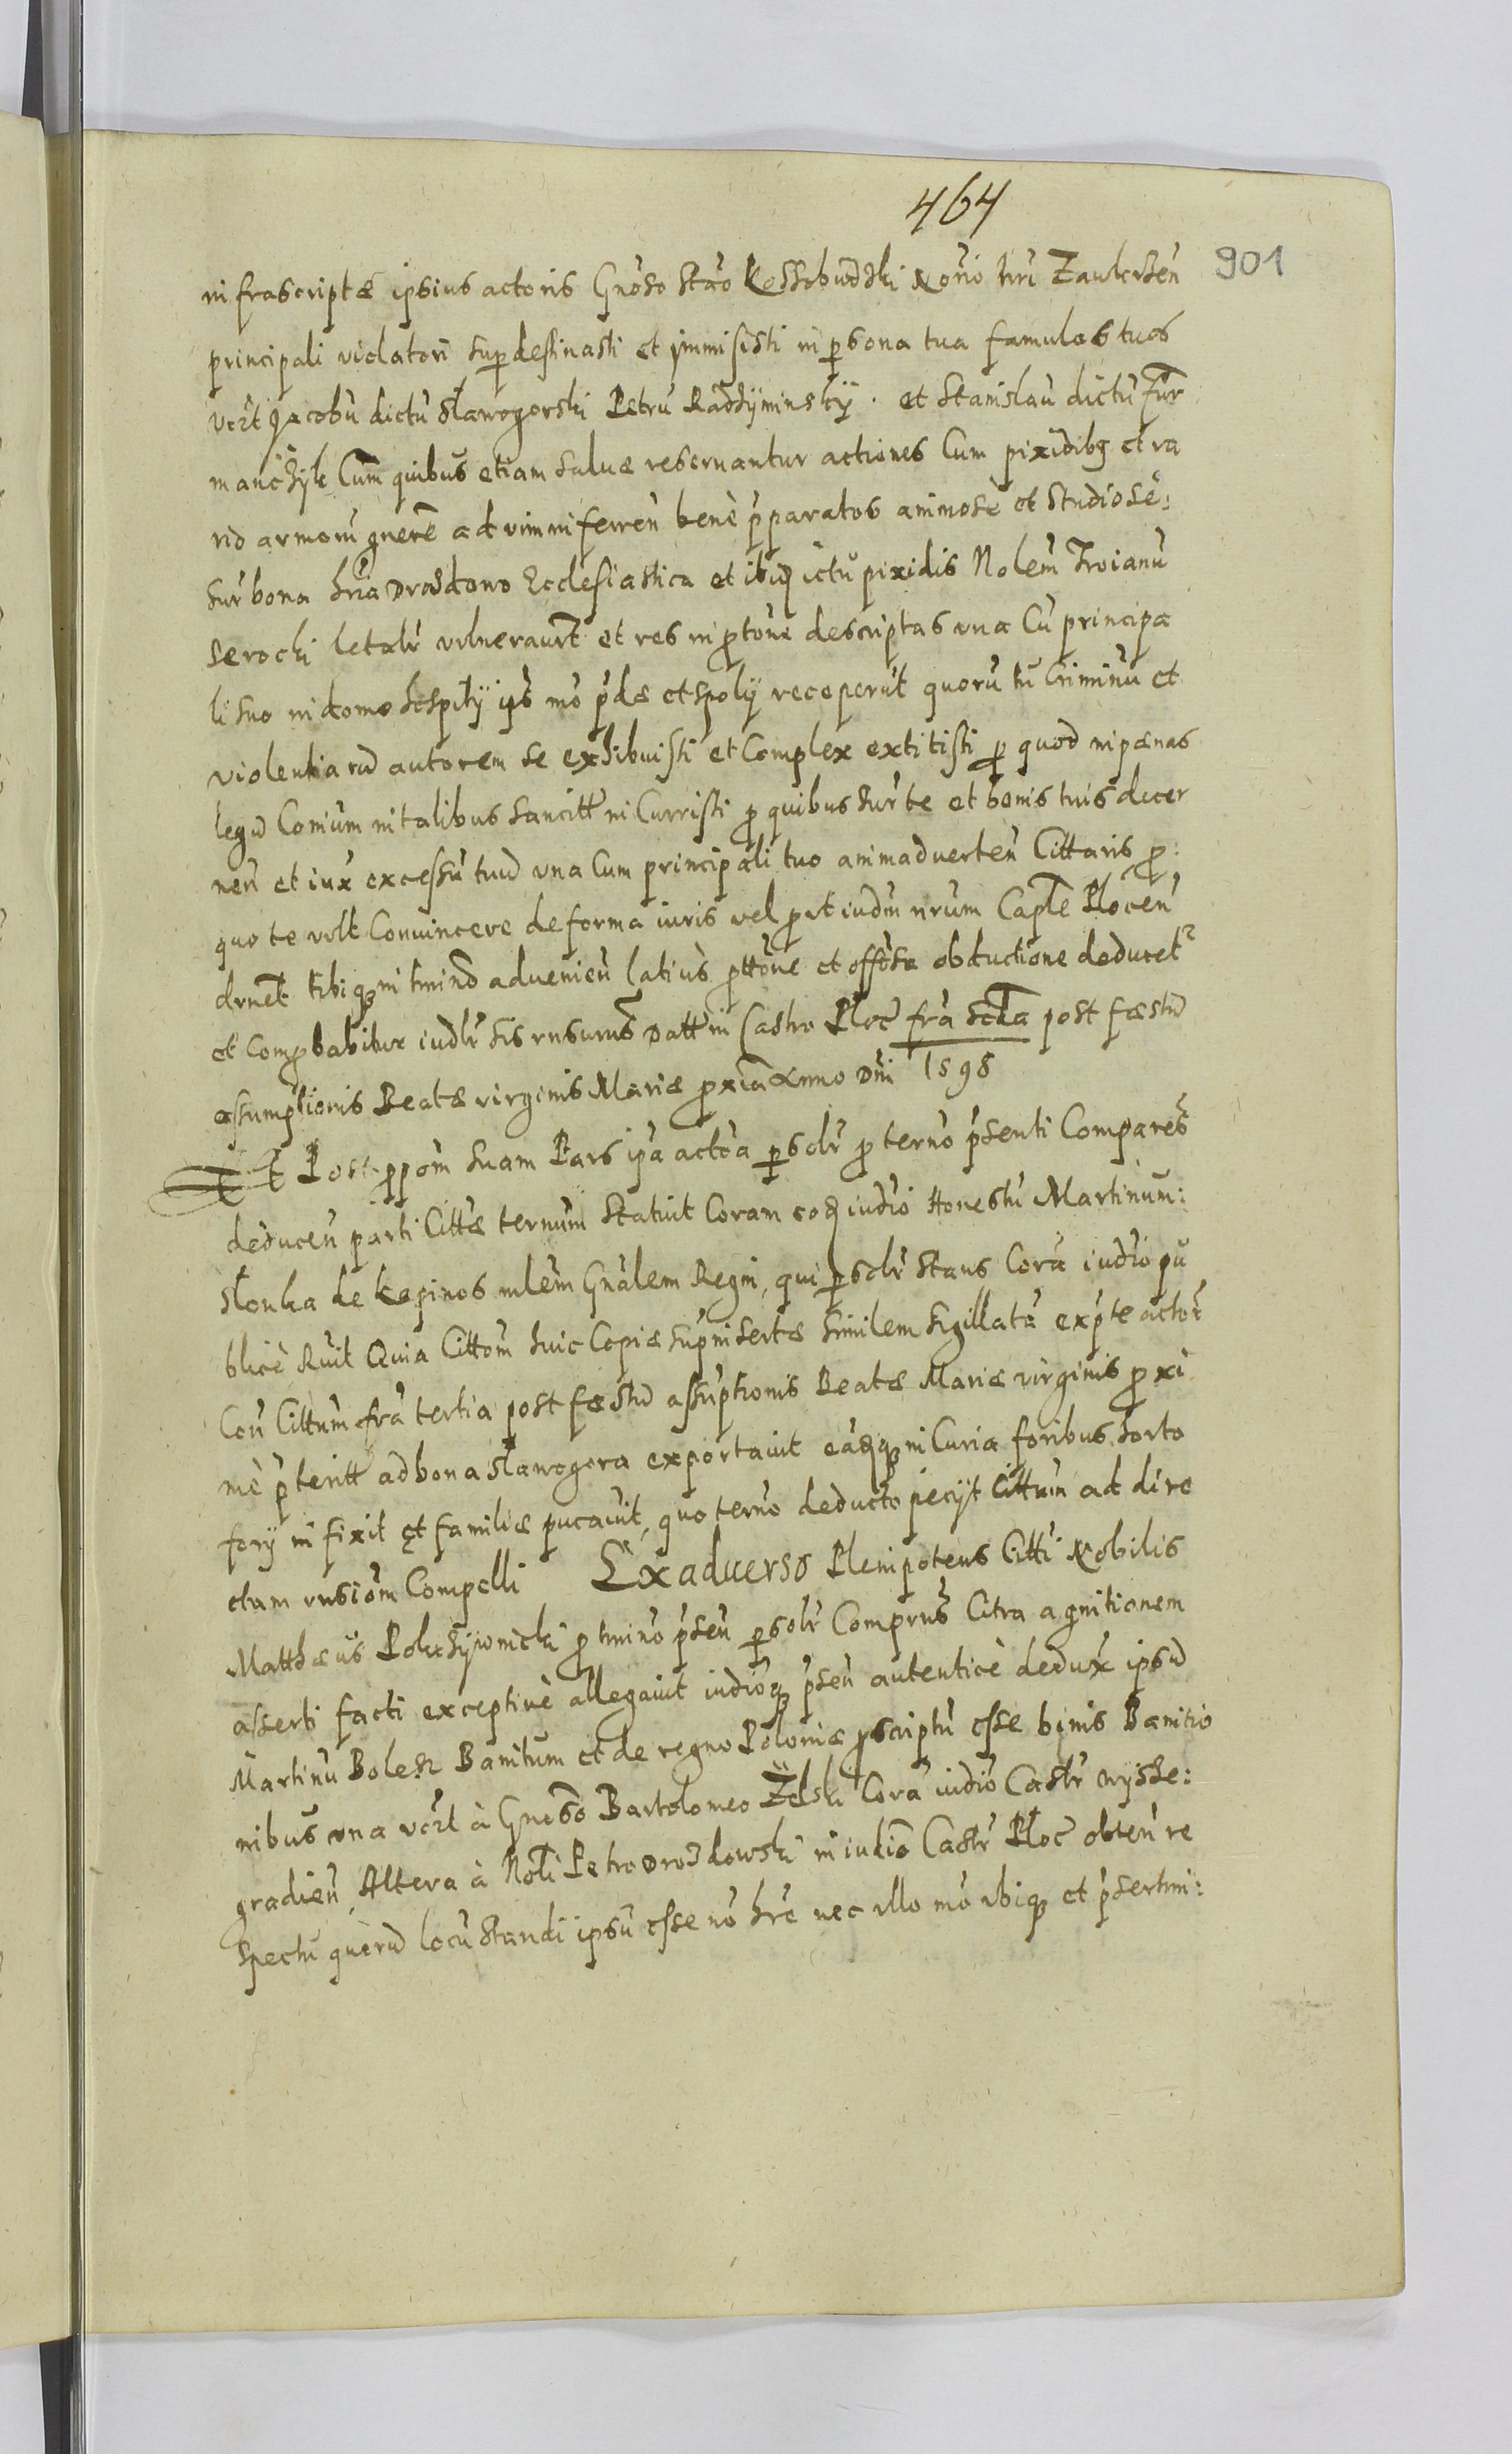 464
901
infrascriptæ ipsius actoris Gnoso Stao Kossobudzki Norio tri Zawkrzen
principali violatori superdestinasti et immisisti in persona tua famulos tuos
vert Jacobu dictu Sławogorski Petru Radzÿminskÿ. et Stanislau dictu Fur
manczÿk Cum quibus etiam saluæ reseruantur actiones Cum pixidibq et va
rio armoru genere ad vim inferen benè pparatos animosè et studiosè:
sur bona hria Drozdowo Ecclesiastica et ibiq ictu pixidis Nolem Troianu
Serocki letalr vulneraurt et res in ptone descriptas vna Cu principa
li suo in domo hospitÿ ips mo pdæ et spolÿ receperut quoru tu Criminu et
violentiaru autorem se exhibuisti et Complex extitisti p quod in pænas
legu Comium in talibus sancitt in Curristi p quibus sur te et bonis tuis decer
nen et iux excessu tuu vna Cum principali tuo animaduerten Cittaris p:
quo te vult Conuincere de forma iuris vel put iudm nrum Caple Plocen
drnet tibiq in tmino adueniem latius pttone et offosa obductione deducetr
et Compbabitur iudlr sis rnsurus Datt in Castro Ploc fra scda post fæstu
assumptionis Beatæ virginis Mariæ pxia Anno Dni 1598
Et Post ppom suam Pars ipa actoa psolr p terno psenti Compares
deducen parti Cittæ ternum statuit Coram eoq iudio Honestu Martinum:
Słonka de Kępinos mlem Gnalem Regni, qui psolr stans Cora iudio pu
blicè Ruit Quia Cittom huic Copiæ supinsertæ similem sigillata ex pte actor
Con Cittum fra tertia post fæstu assuptionis Beatæ Mariæ virginis proxi
mè pteritt ad bona Sławogora exportauit eaqq in Curia foribus horto
forÿ infixit et familiæ pucauit, quo terno deducto pecÿt Cittum ad dire
ctam rnsiom Compelli Ex aduerso Plenipotens Citti Nobilis
Matthæus Pokrzÿwnicki p tmino psen psolr Comprns Citra agnitionem
asserti facti exceptiuè allegauit iudioq psen autenticè dedux ipsu
Martinu Bolesz Banitum et de regno Poloniæ pscriptu esse binis Banitio
nibus vna vert à Gnoso Bartolomeo Zelski Cora iudio Castr Wÿsse:
gradien, Altera à Noli Petro Drozdowski in iudio Castr Ploc obten re
spectu queru locu standi ipsu esse no hre nec vllo mo vbiq et psertim: